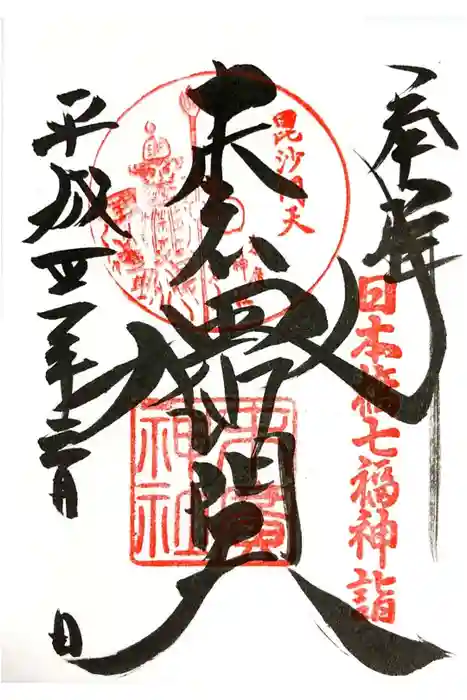 奉拝
日本橋七福神詣
毘沙門天
末廣
毘沙門天
末廣
神社
平成 年 月 日